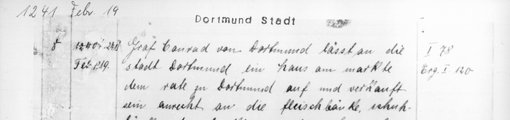 1241 Febr 19
Dortmund Stadt
8 Graf Conrad von Dortmund lässt an die I 78
Febr. 19. stadt Dortmund ein haus am markte Erg. I 120
dem rate zu Dortmund auf und verkauft
sein anrecht an die fleischbänke, schuh-